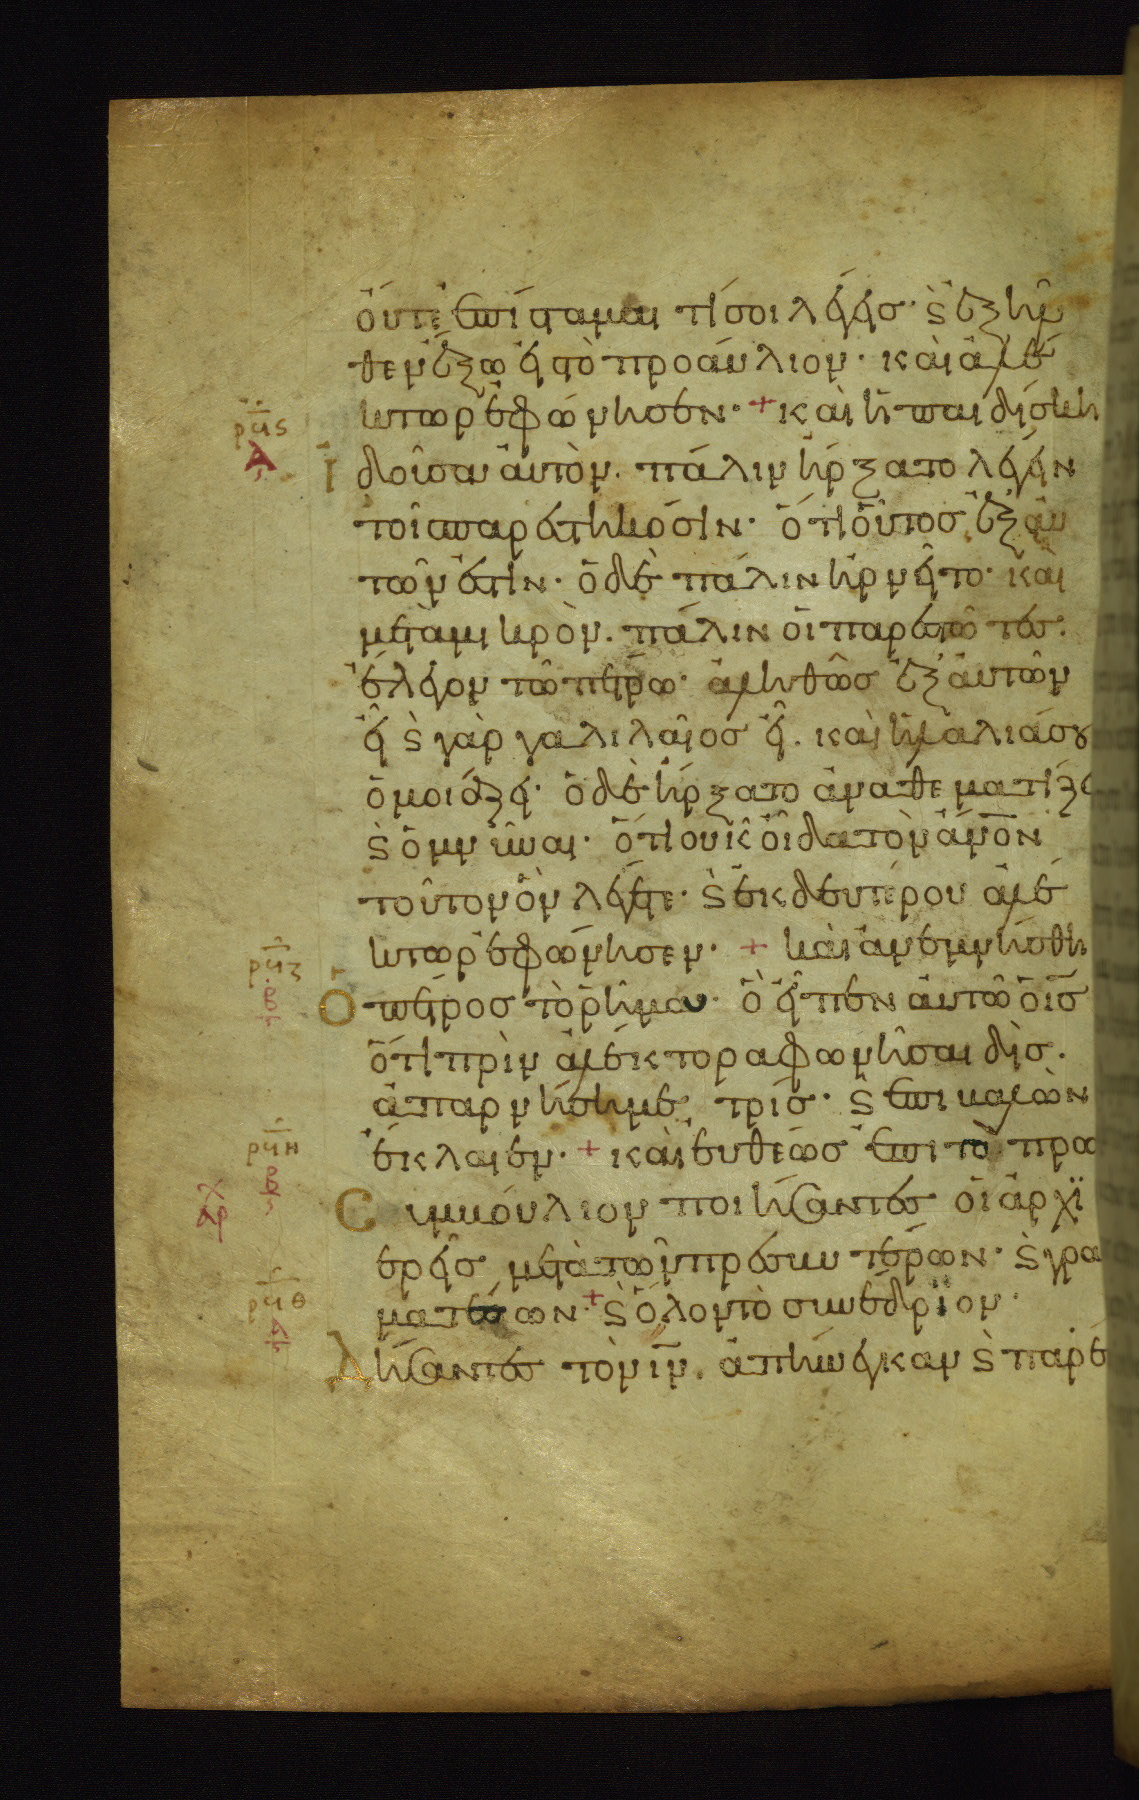 οὔτε ἐπίσταμαι τί σοι λέγεις· ϗ ἐξῆλ
θεν ἔξω εἰς τὸ προαύλιον· καὶ ἀλέ
κτωρ ἐφώνησεν· + καὶ ἡ παιδίσκη
ρϟϛ
Α
ϊδοῦσα αὐτὸν. πάλιν ἤρξατο λέγειν
τοῖς παρεστηκόσιν· ὅτι οὗτος ἐξ αὐ
τῶν ἐστίν· ὁ δὲ πάλιν ἠρνεῖτο· καὶ
μετὰ μικρὸν. πάλιν οἱ παρεστῶτες.
ἔλεγον τῶ πέτρω· ἀληθῶς ἐξ αὐτῶν
εἶ ϗ γὰρ γαλιλαῖος εἶ. καὶ ἡ λαλιά σου
ὁμοιάζει· ὁ δὲ ἤρξατο ἀναθεματίζει
ϗ ὀμνύναι· ὅτι οὐκ οἶδα τὸν ἄνον
τοῦτον ὃν λέγετε· ϗ ἐκ δευτέρου ἀλέ
κτωρ ἐφώνησεν· + καὶ ἀνεμνήσθη
ρϟζ
β
Ὁ πέτρος τὸ ῥῆμα· ὃ εἶπεν αὐτῶ ὁ ις
ὅτι πρὶν ἀλέκτορα φωνῆσαι δὶς.
ἀπαρνήση με τρίς· ϗ ἐπιβαλὼν
ρϟη
β
ἔκλαιεν· + καὶ εὐθέως ἐπὶ τὸ πρω
αρχ
Συμβούλιον ποιήσαντες οἱ ἀρχϊ
ερεῖς μετὰ τῶν πρεσβυτέρων· ϗ γρα
ρϟθ
Α
ματέων· + ϗ ὅλον τὸ συνέδρϊον·
Δήσαντες τὸν ιν. ἀπήνεγκαν ϗ παρέ